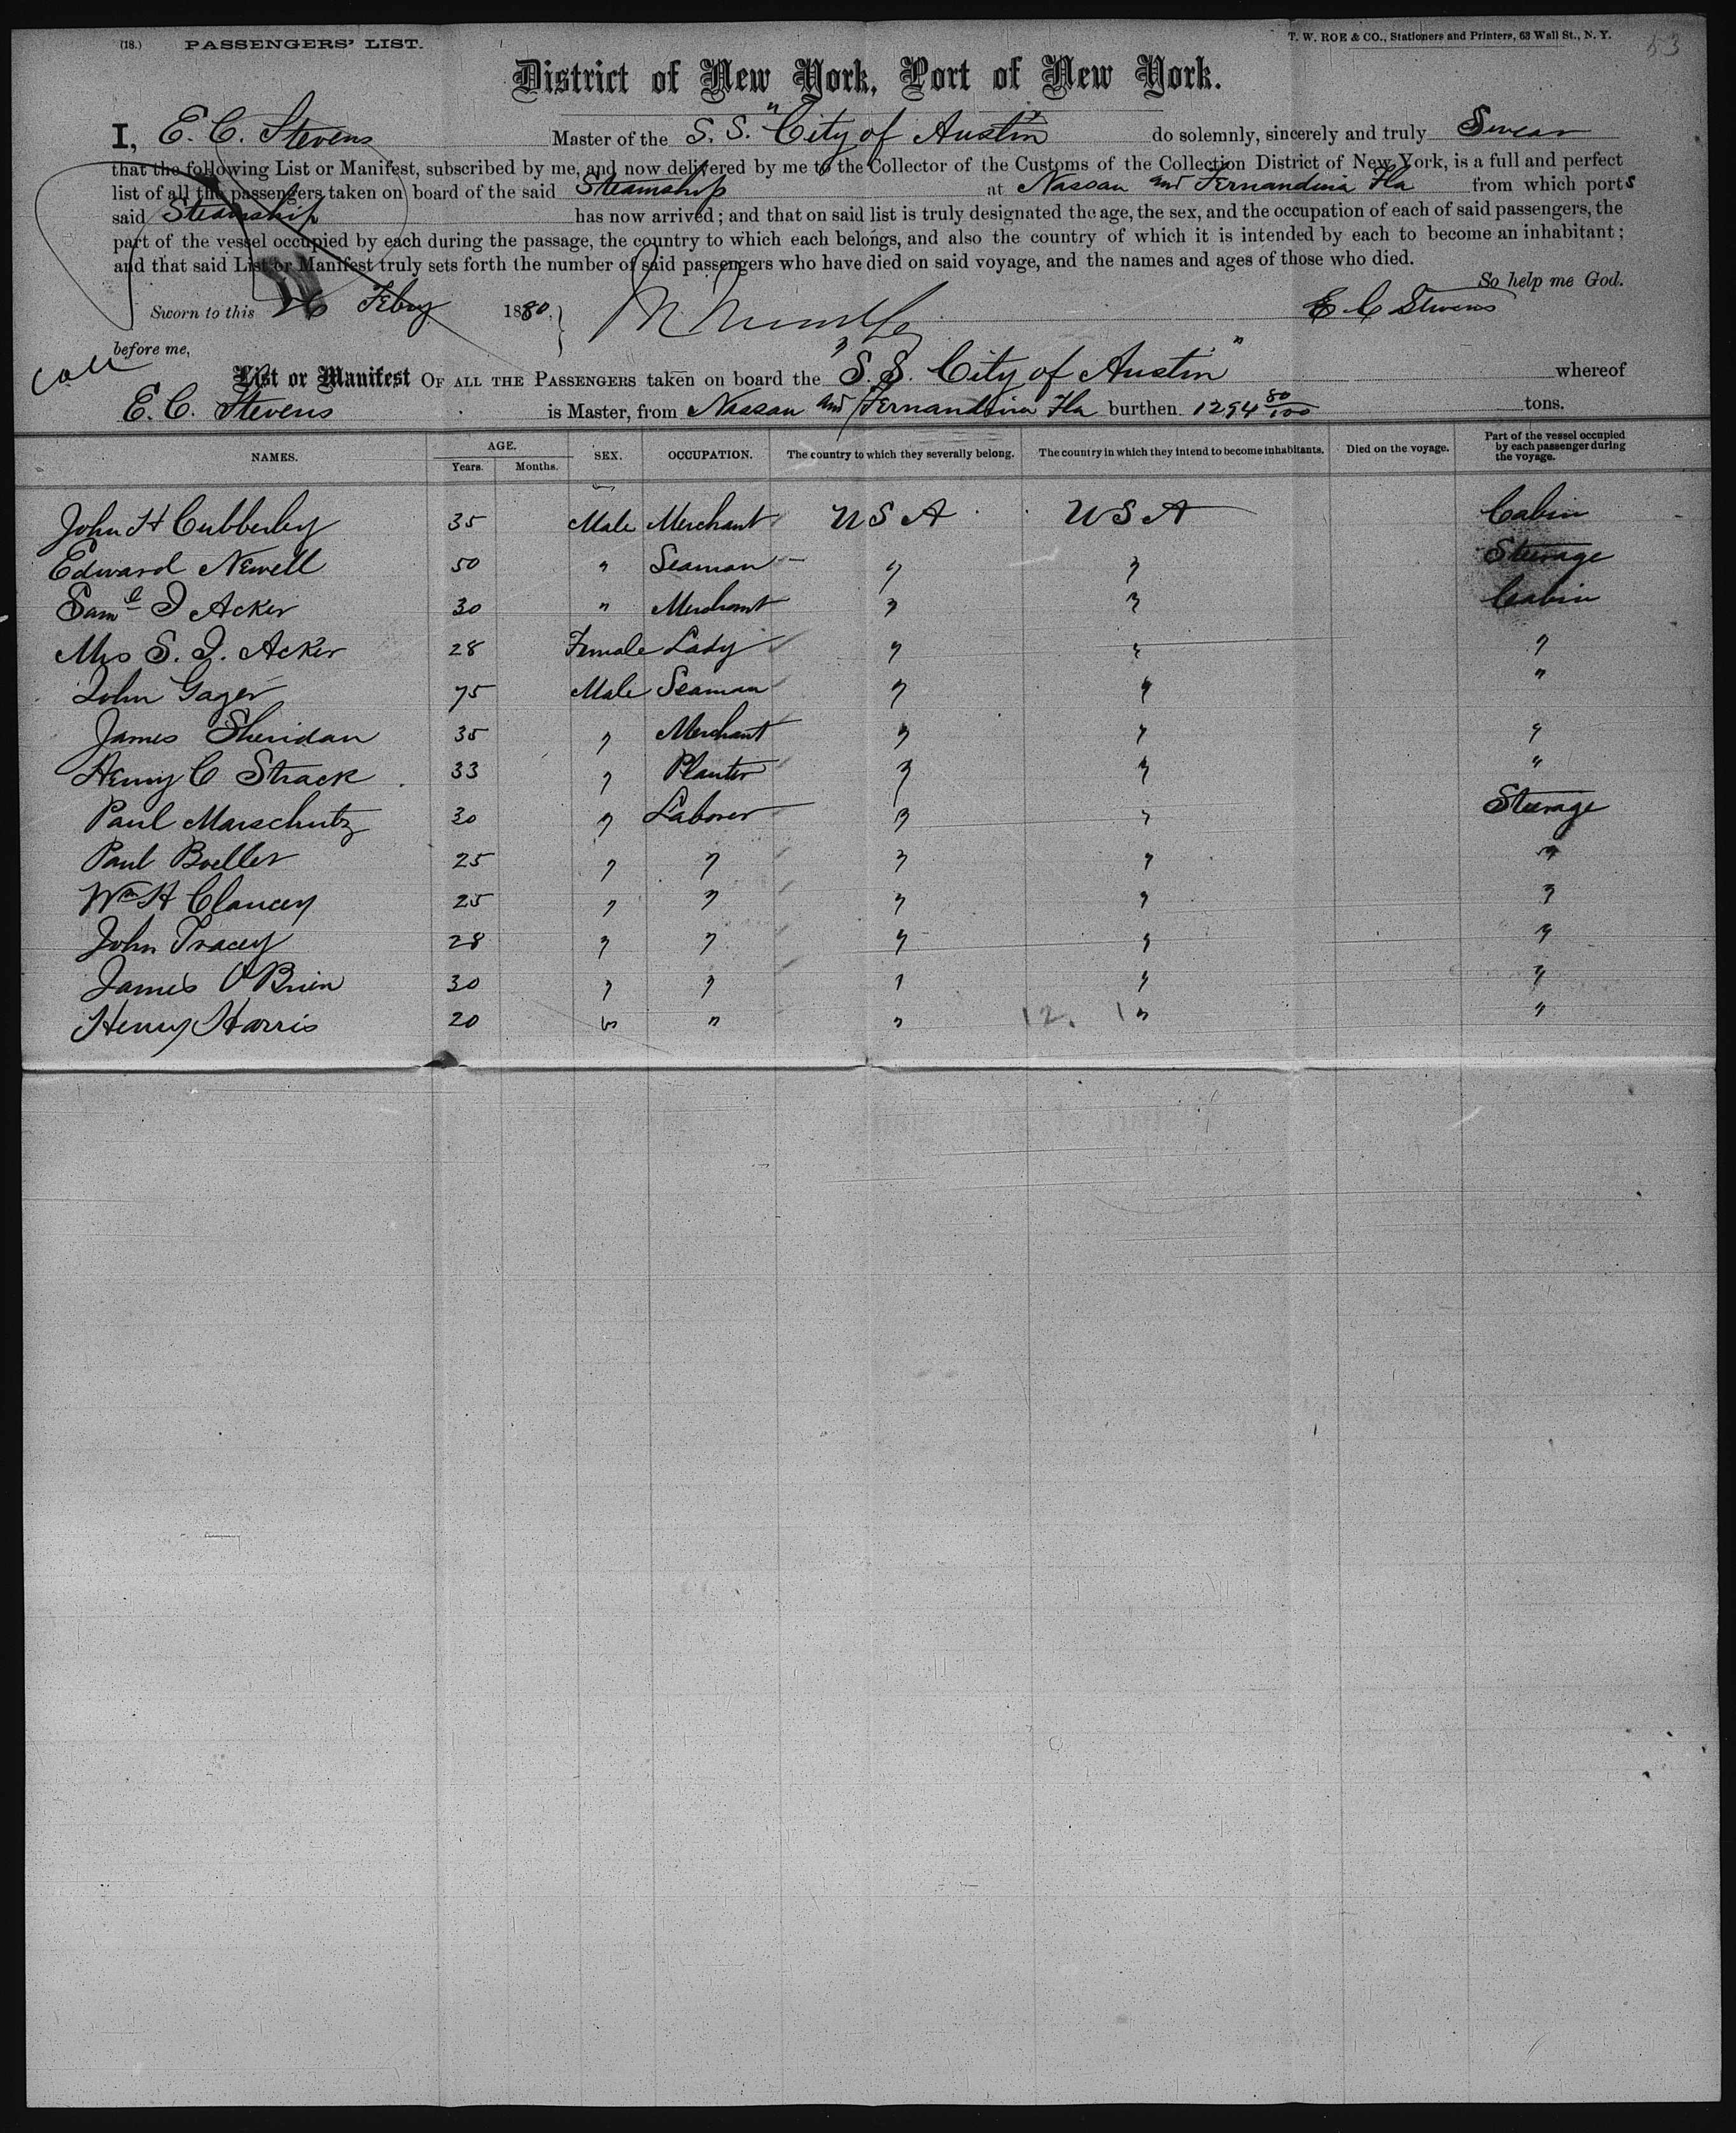 (18.) PASSENGERS' LIST. T. W. ROE & CO., Stationers and Printers, 63 Wall St., N. Y. 53
District of New York, Port of New York.
I, E. C. Stevens Master of the S. S. "City of Austin" do solemnly, sincerely and truly Swear
that the following List or Manifest, subscribed by me, and now delivered by me to the Collector of the Customs of the Collection District of New York, is a full and perfect
list of all the passengers taken on board of the said Steamship at Nassau and Fernandina Fla from which ports
said Steamship has now arrived; and that on said list is truly designated the age, the sex, and the occupation of each of said passengers, the
part of the vessel occupied by each during the passage, the country to which each belongs, and also the country of which it is intended by each to become an inhabitant;
and that said List or Manifest truly sets forth the number of said passengers who have died on said voyage, and the names and ages of those who died.
So help me God.
Sworn to this 26 Feby 1880, E C Stevens
before me,
List or Manifest OF ALL THE PASSENGERS taken on board the "S. S. City of Austin" whereof
E. C. Stevens is Master, from Nassau and Fernandina Fla burthen 1294 80/100 tons.
NAMES. AGE. Years. Months. SEX. OCCUPATION. The country to which they severally belong. The country in which they intend to become inhabitants. Died on the voyage. Part of the vessel occupied by each passenger during the voyage.
John H Cubberley 35 Male Merchant U S A U S A Cabin
Edward Newell 50 " Seaman " " Steerage
Saml I Acker 30 " Merchant " " Cabin
Mrs S. I. Acker 28 Female Lady " " "
John Gager 75 Male Seaman " " "
James Sheridan 35 " Merchant " " "
Henry C Strack 33 " Planter " " "
Paul Marschutz 30 " Laborer " " Steerage
Paul Boeller 25 " " " " "
Wm H Clancey 25 " " " " "
John Tracey 28 " " " " "
James O'Brien 30 " " " " "
Henry Harris 20 " " " 12. 1 " "